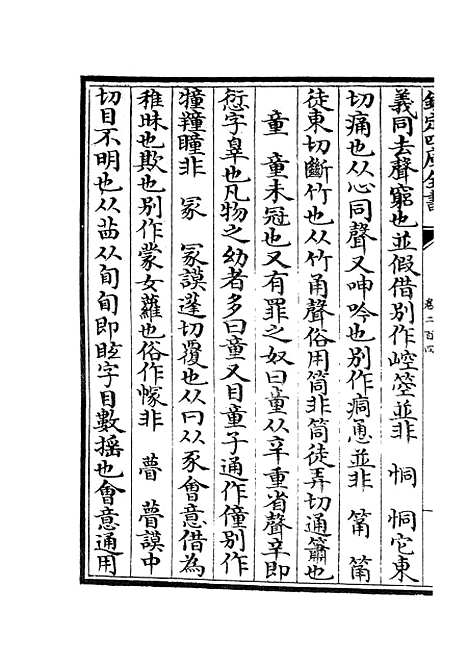 欽定四庫全書
卷二百四
義同去聲窮也並假借别作崆箜並非　恫　恫它東
切痛也从心同聲又呻吟也别作痌恿並非　筩　筩
徒東切斷竹也从竹甬聲俗用筒非筒徒弄切通簫也
童　童未冠也又有罪之奴曰童从䇂重省聲䇂即
愆字辠也凡物之幼者多曰童又目童子通作僮别作
犝䡴瞳非　冡　冡謨蓬切覆也从冃从豕會意借為
稚昧也欺也别作蒙女蘿也俗作幪非　瞢　瞢謨中
切目不明也从苜从旬旬即眩字目數搖也會意通用